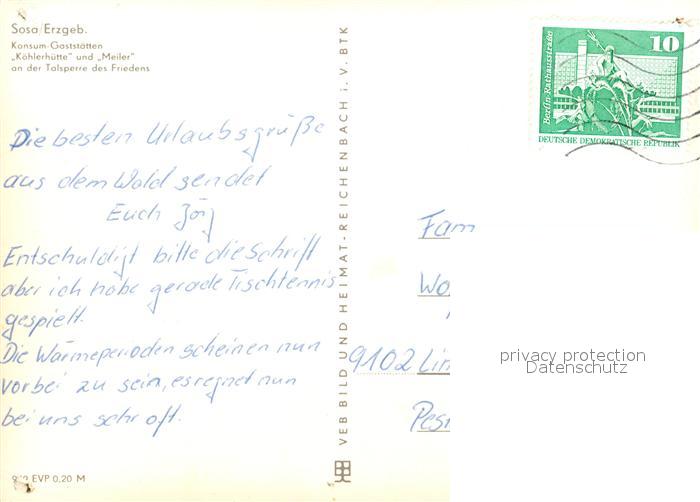 Sosa/Erzgeb.
Konsum-Gaststätten
„Köhlerhütte" und „Meiler"
an der Talsperre des Friedens
Die besten Urlaubsgrüße
aus dem Wald sendet
Euch Jörg
Entschuldigt bitte die Schrift
aber ich habe gerade Tischtennis
gespielt.
Die Wärmeperioden scheinen nun
vorbei zu sein, es regnet nun
bei uns sehr oft.
EVP 0,20 M
VEB BILD UND HEIMAT-REICHENBACH i. V. BTK
Berlin-Rathausstraße
10
DEUTSCHE DEMOKRATISCHE REPUBLIK
Fam
9102 Lim
privacy protection
Datenschutz